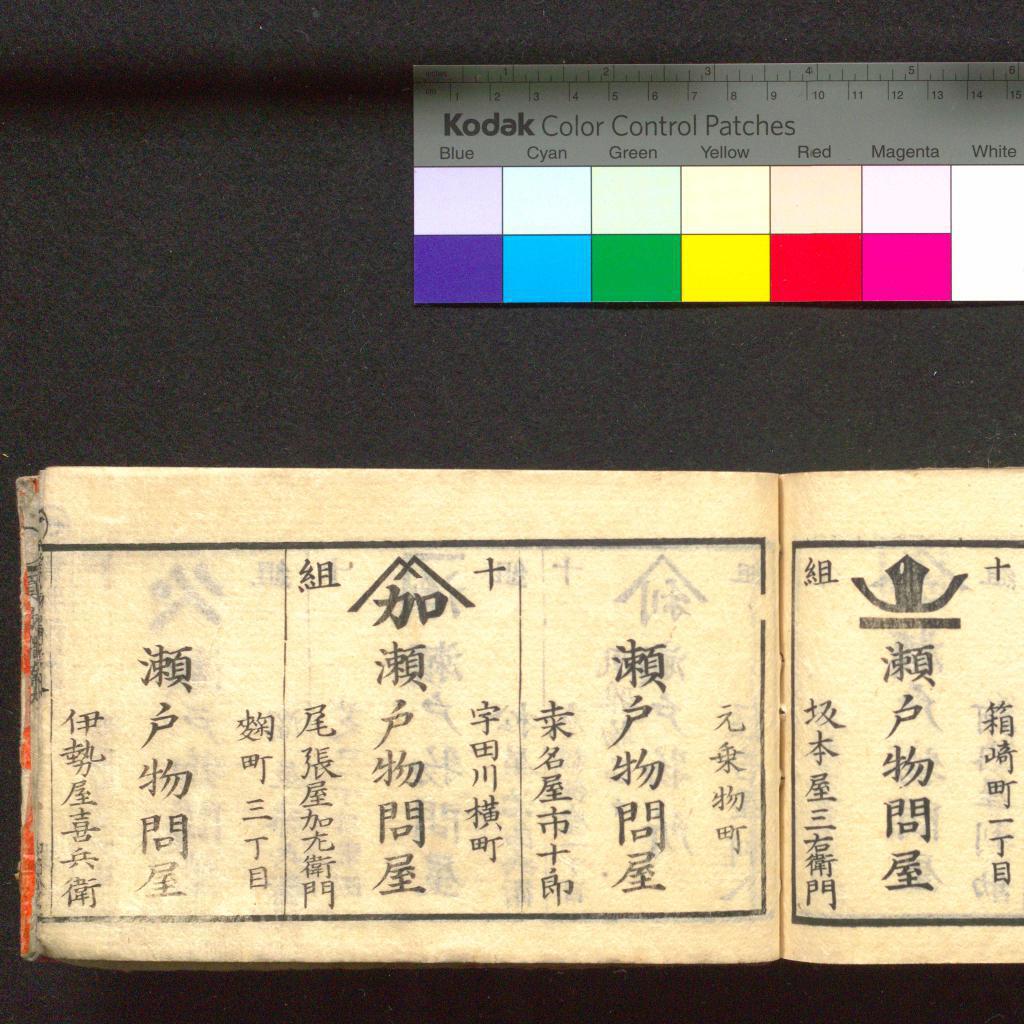 inches 1 2 3 4 5 6
cm 1 2 3 4 5 6 7 8 9 10 11 12 13 14 15
Kodak Color Control Patches
Blue Cyan Green Yellow Red Magenta White
十組
箱崎町一丁目
瀬戸物問屋
坂本屋三右衛門
元乗物町
瀬戸物問屋
桒名屋市十郎
十組
宇田川横町
加
瀬戸物問屋
尾張屋加左衛門
麹町三丁目
瀬戸物問屋
伊勢屋喜兵衛